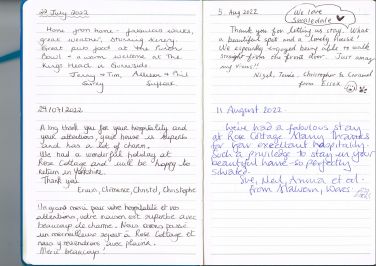 29 July 2022
Home from home - fabulous walks,
great weather, stunning scenery.
Great pub food at the Punch
Bowl - a warm welcome at The
Kings Head in Gunnerside
Jerry + Tim, Alison + Phil
Surrey
29/07/2022
A big thank you for your hospitality and
your attentions, your house is superb
and has a lot of charm.
We had a wonderful holiday at
Rose Cottage and will be happy to
return in Yorkshire.
Thank you
Erwin, Clémence, Christel, Christophe
Un grand merci pour votre hospitalité et vos
attentions, votre maison est superbe avec
beaucoup de charme. Nous avons passé
un merveilleux séjour à Rose Cottage et
nous y reviendrons avec plaisir.
Merci beaucoup!
5 Aug 2022
We love
Swaledale
Thank you for letting us stay. What
a beautiful spot and a lovely house!
We especially enjoyed being able to walk
straight from the front door. Just away
Nigel, Christopher &
from Essex
11 August 2022
We've had a fabulous stay
at Rose Cottage. Many thanks
for your excellent hospitality.
Such a privilege to stay in your
beautiful home so perfectly
situated.
Sue, Ned, Anwa et al.
from Malvern, Worcs